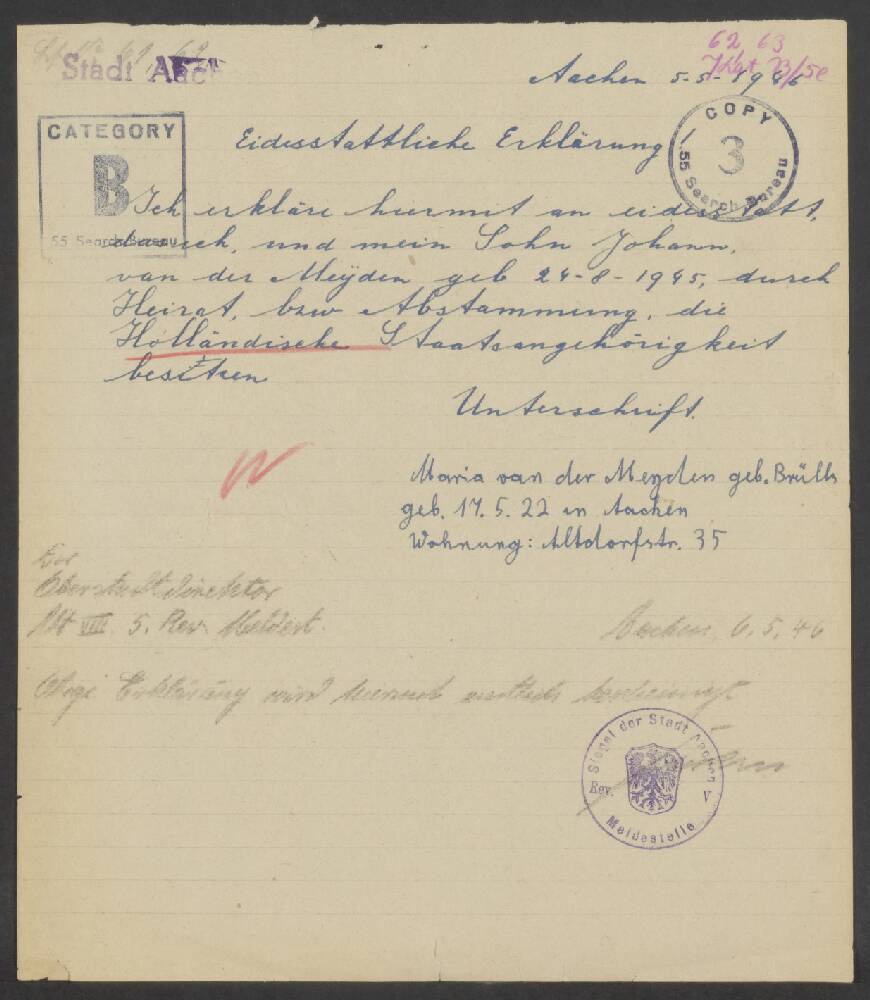 62 63
Stadt Aach
Aachen 5-5-1946
CATEGORY
B
55 Search Bureau
COPY
3
55 Search Bureau
Eidesstattliche Erklärung
Ich erkläre hiermit an eidesstatt,
dass ich, und mein Sohn Johann,
van der Meÿden geb 24-8-1945, durch
Heirat, bzw Abstammung, die
Holländische Staatsangehörigkeit
besitzen
Unterschrift.
Maria van der Meyden geb. Brülls
geb. 17.5.22 in Aachen
Wohnung: Altdorfstr. 35
Der
Oberstadtdirektor
Abt VIII. 5. Rev. Meldest.
Aachen, 6.5.46
Obige Erklärung wird hiermit amtlich bescheinigt
Siegel der Stadt Aachen
Rev. V
Meldestelle